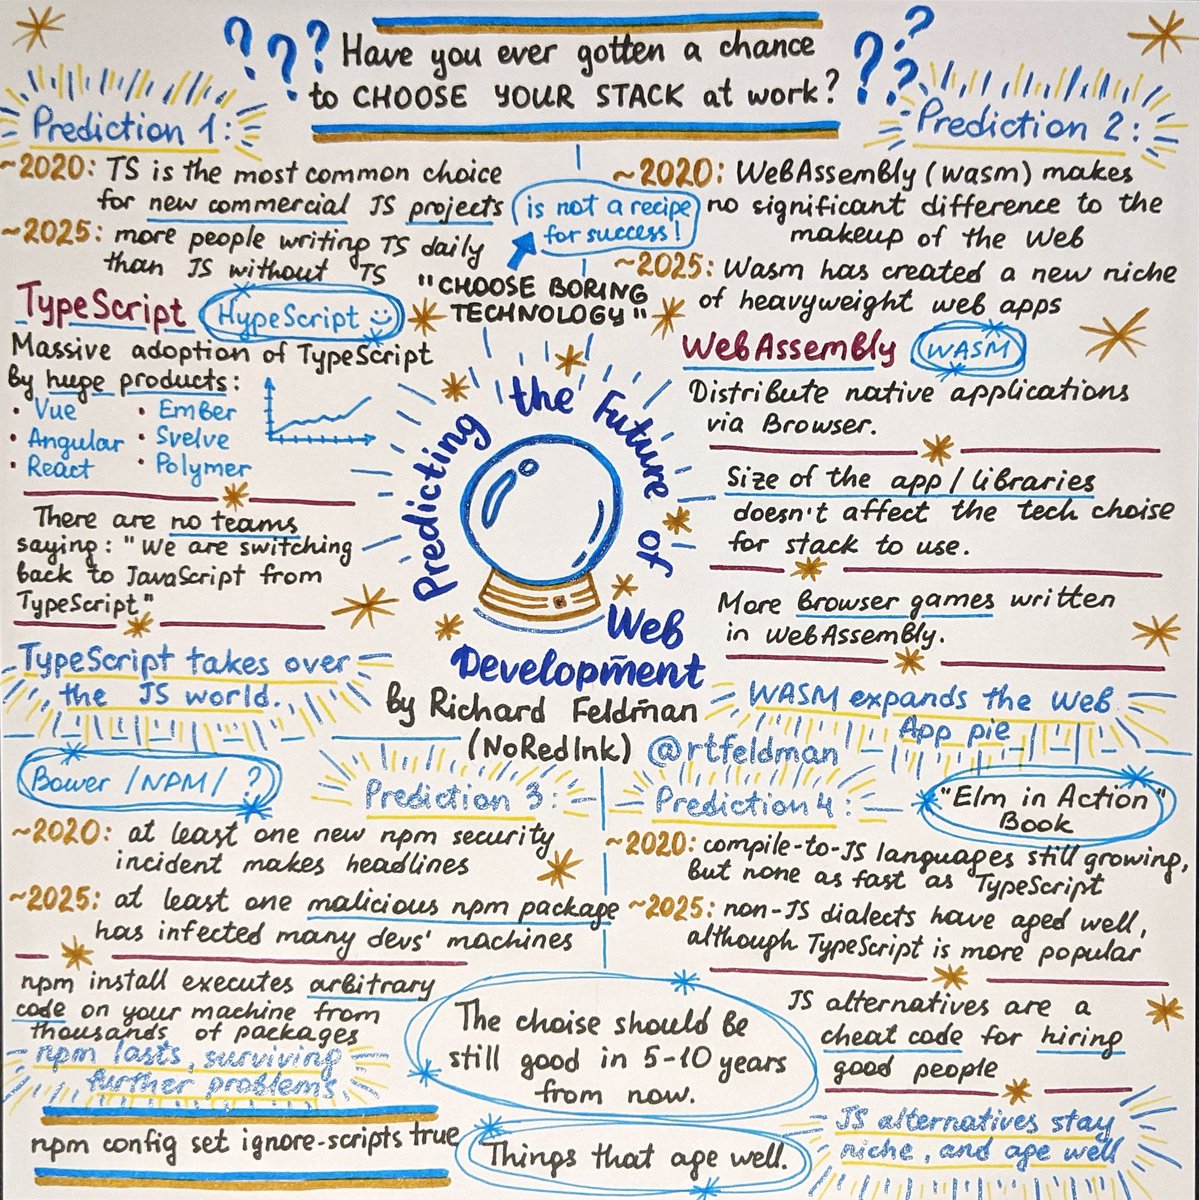 ??? Have you ever gotten a chance ???
to CHOOSE YOUR STACK at work?
Prediction 1:
~2020: TS is the most common choice
for new commercial JS projects
~2025: more people writing TS daily
than JS without TS
TypeScript HypeScript
Massive adoption of TypeScript
by huge products:
• Vue • Ember
• Angular • Svelve
• React • Polymer
There are no teams
saying: "We are switching
back to JavaScript from
TypeScript"
TypeScript takes over
the JS world.
is not a recipe
for success!
"CHOOSE BORING
TECHNOLOGY"
Predicting the Future of
Web
Development
by Richard Feldman
(NoRedInk) @rtfeldman
Prediction 2:
~2020: WebAssembly (wasm) makes
no significant difference to the
makeup of the Web
~2025: Wasm has created a new niche
of heavyweight web apps
WebAssembly WASM
Distribute native applications
via Browser.
Size of the app/libraries
doesn't affect the tech choise
for stack to use.
More Browser games written
in WebAssembly.
WASM expands the Web
App pie
Bower /NPM/ ?
Prediction 3:
~2020: at least one new npm security
incident makes headlines
~2025: at least one malicious npm package
has infected many devs' machines
npm install executes arbitrary
code on your machine from
thousands of packages
npm lasts, surviving
further problems
npm config set ignore-scripts true
Prediction 4:
"Elm in Action"
Book
~2020: compile-to-JS languages still growing,
but none as fast as TypeScript
~2025: non-JS dialects have aged well,
although TypeScript is more popular
JS alternatives are a
cheat code for hiring
good people
JS alternatives stay
niche, and age well
The choise should be
still good in 5-10 years
from now.
Things that age well.